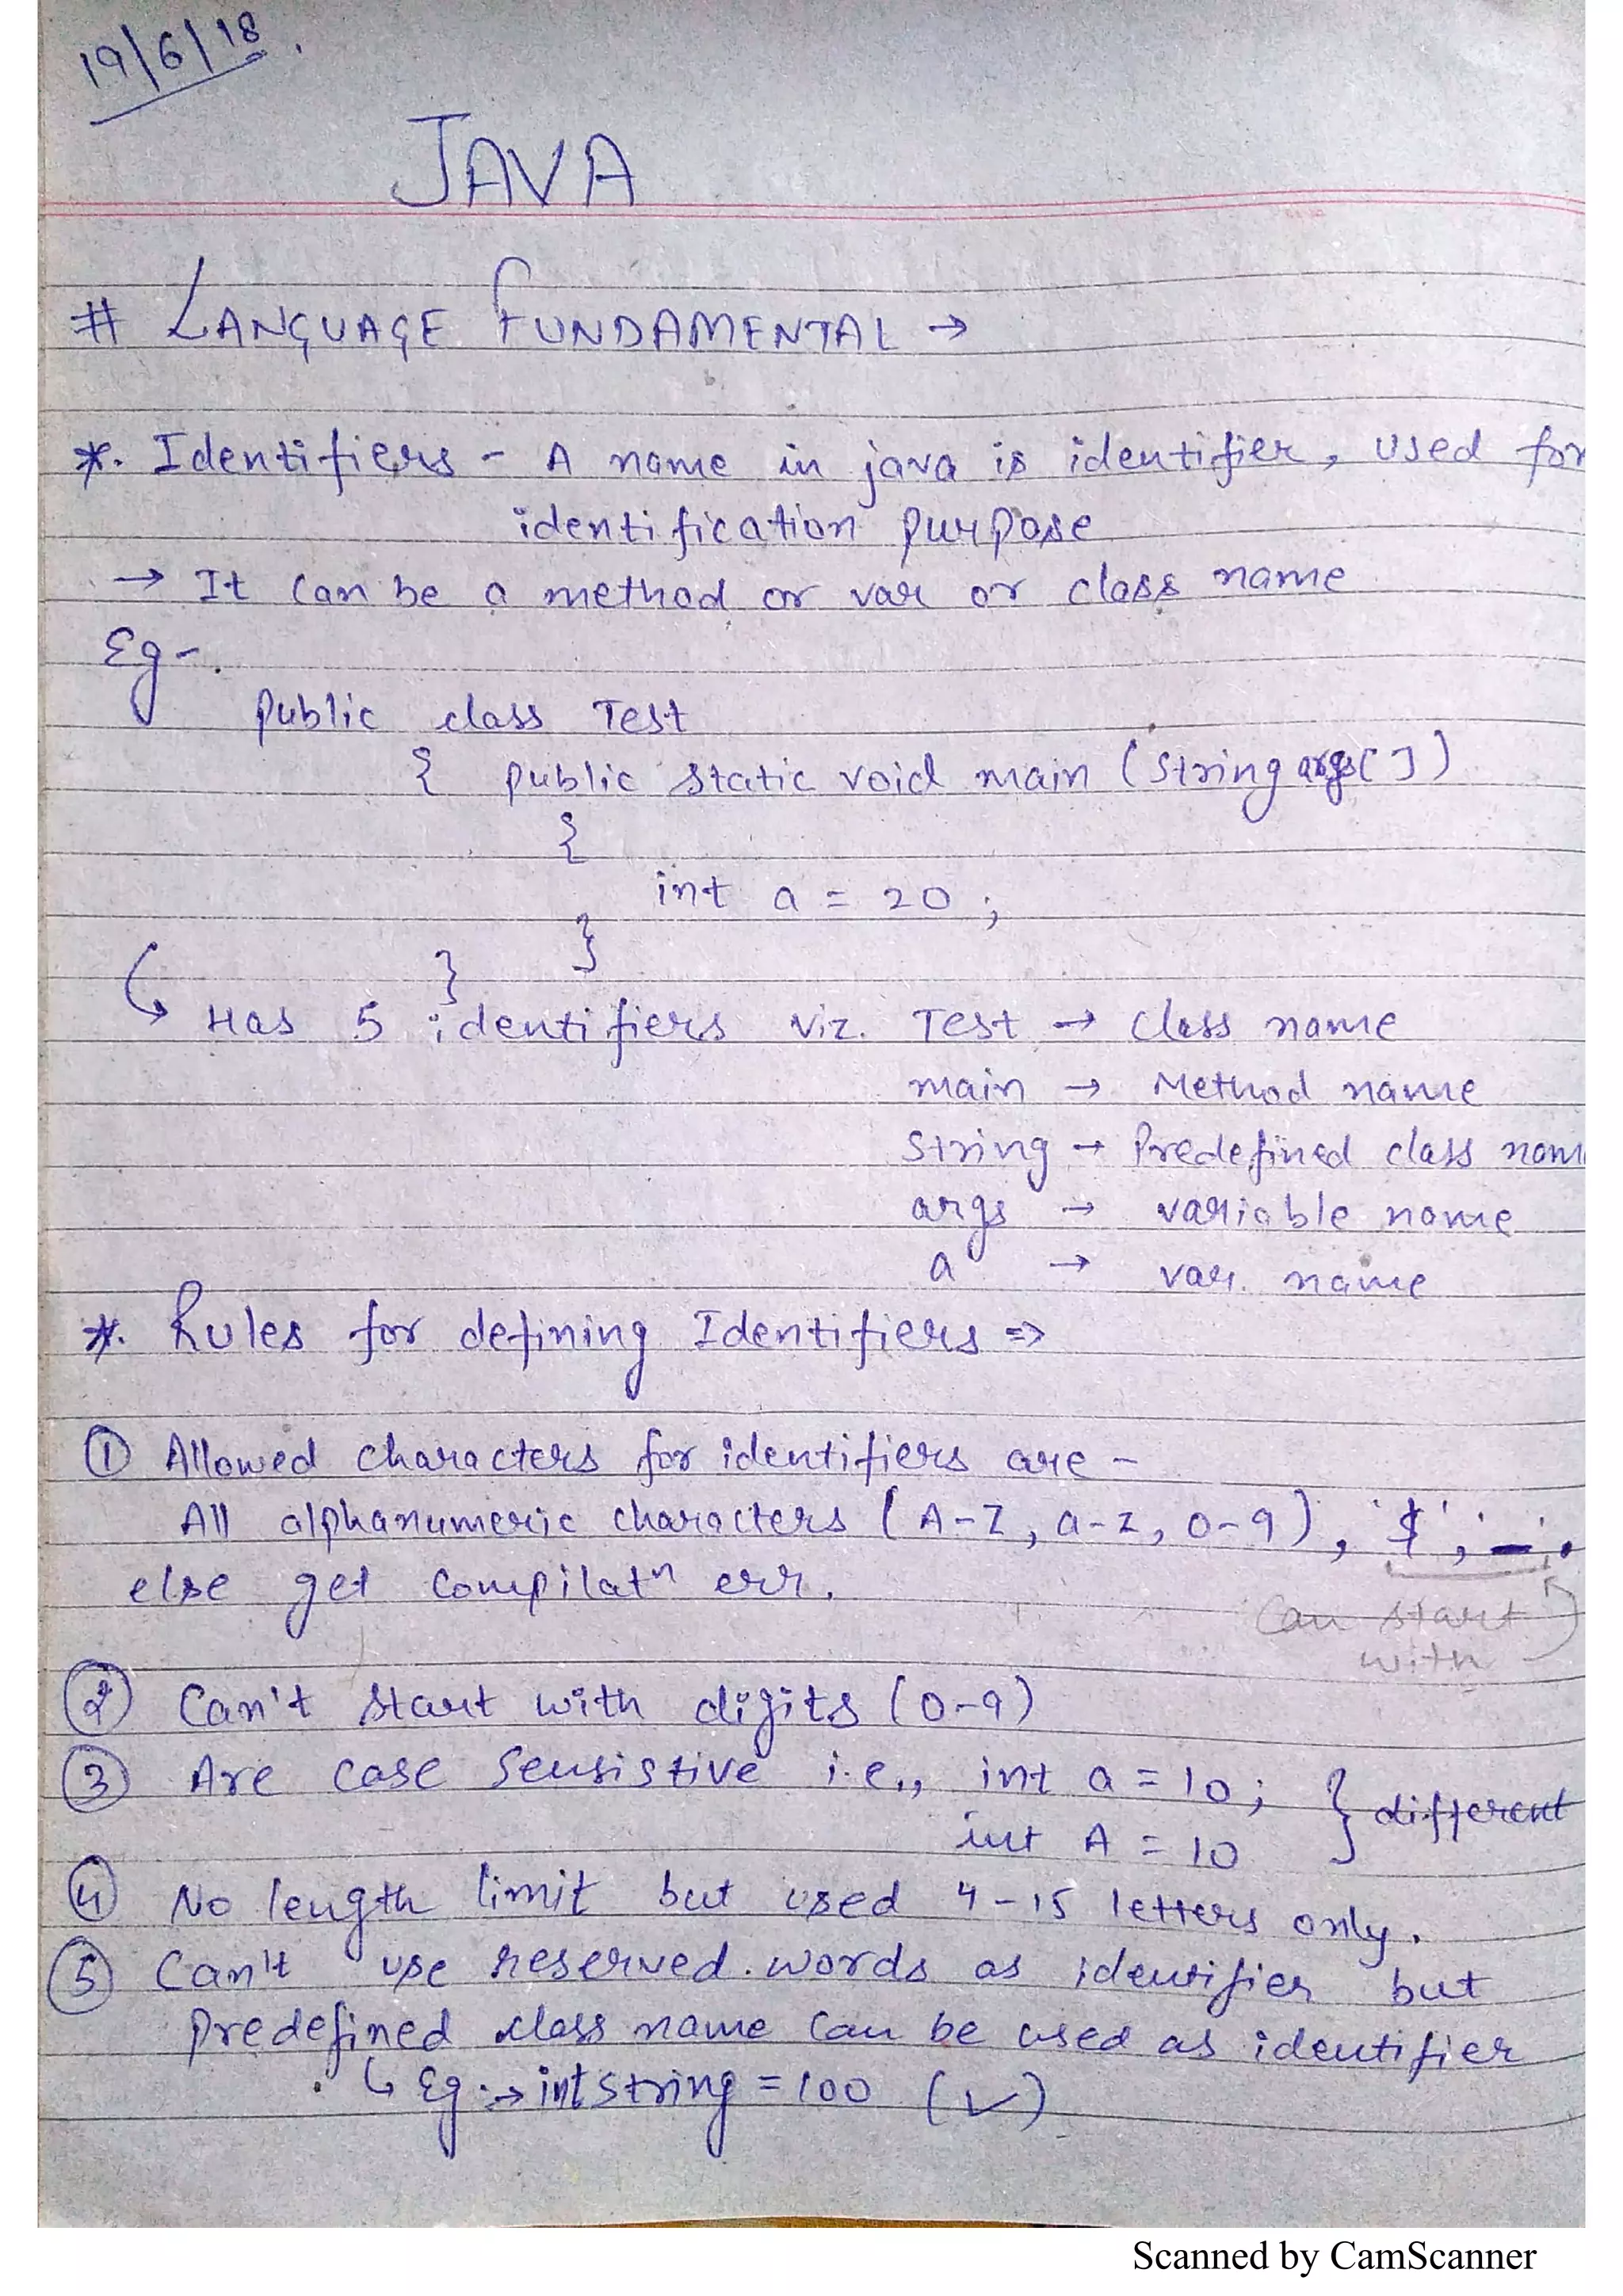 19/6/18.
JAVA
# LANGUAGE FUNDAMENTAL →
*. Identifiers - A name in java is identifier, used for
identification purpose
→ It can be a method or var or class name
Eg-.
public class Test
{ public static void main (String args[])
{
int a = 20 ;
}
}
↳ Has 5 identifiers viz. Test → class name
main → Method name
String → Predefined class nam
args → variable name
a → var. name
*. Rules for defining Identifiers ⇒
① Allowed characters for identifiers are -
All alphanumeric characters (A-Z, a-z, 0-9), '$', '_'.
else get compilatn err.
Can start
with
② Can't start with digits (0-9)
③ Are case sensistive i.e., int a = 10; } different
int A = 10
④ No length limit but used 4-15 letters only.
⑤ Can't use reserved words as identifier but
predefined class name can be used as identifier
↳ Eg.→ int String = 100 (✓)
Scanned by CamScanner